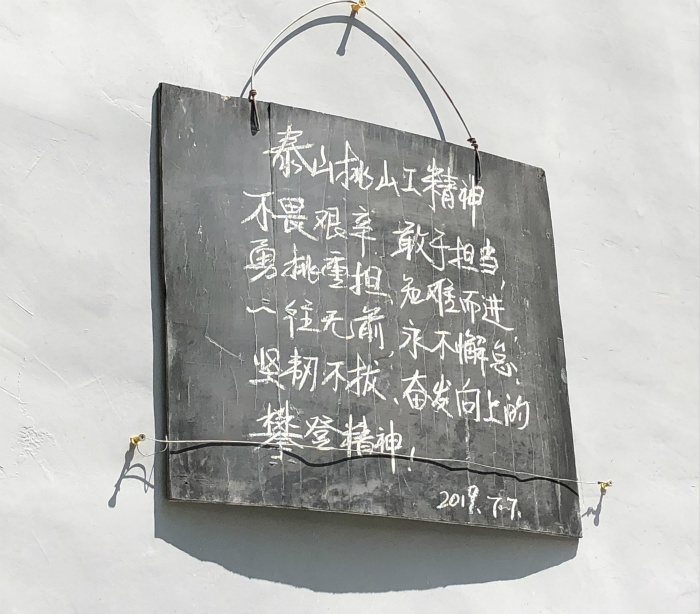 泰山挑山工精神
不畏艰辛 敢于担当,
勇挑重担、危难而进,
一往无前、永不懈怠,
坚韧不拔、奋发向上的
攀登精神!
2019.7.7.